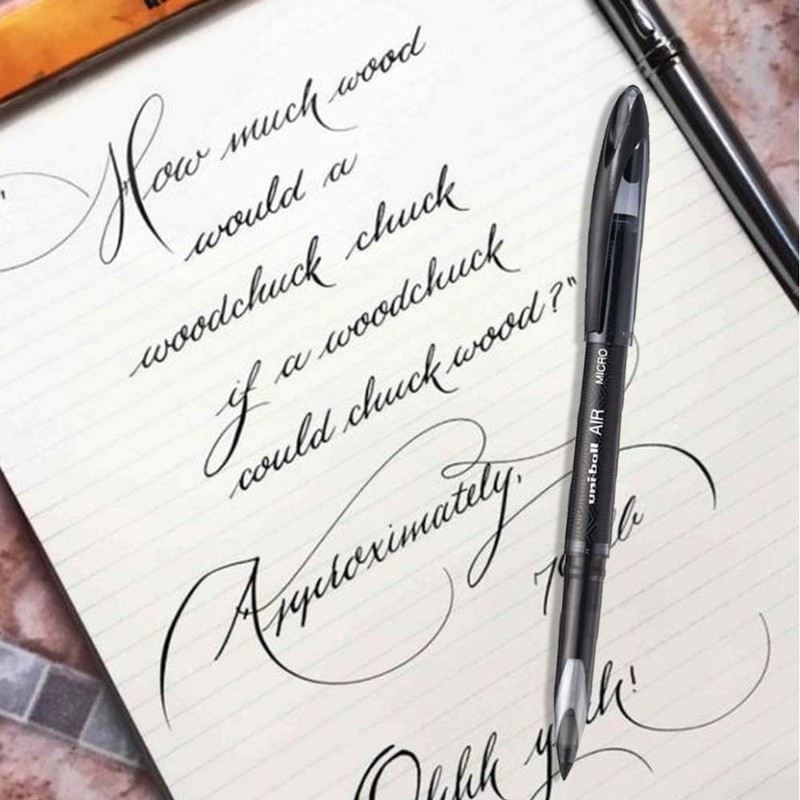 "How much wood
would a
woodchuck chuck
if a woodchuck
could chuck wood?"
Approximately,
lb
Ohhh
uni-ball AIR MICRO